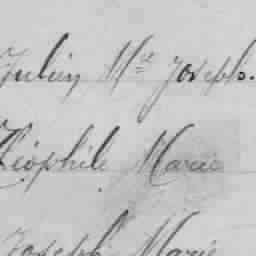 Julien Mie Joseph.
Théophile Marie
Joseph Marie